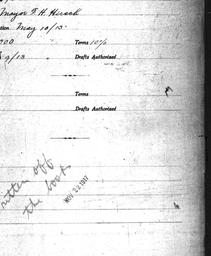 Mayor F. H. Hirsch
tion May 10/13.
000 Terms 10%
9/13 Drafts Authorized
Terms
Drafts Authorized
written off
the books
NOV 22 1917